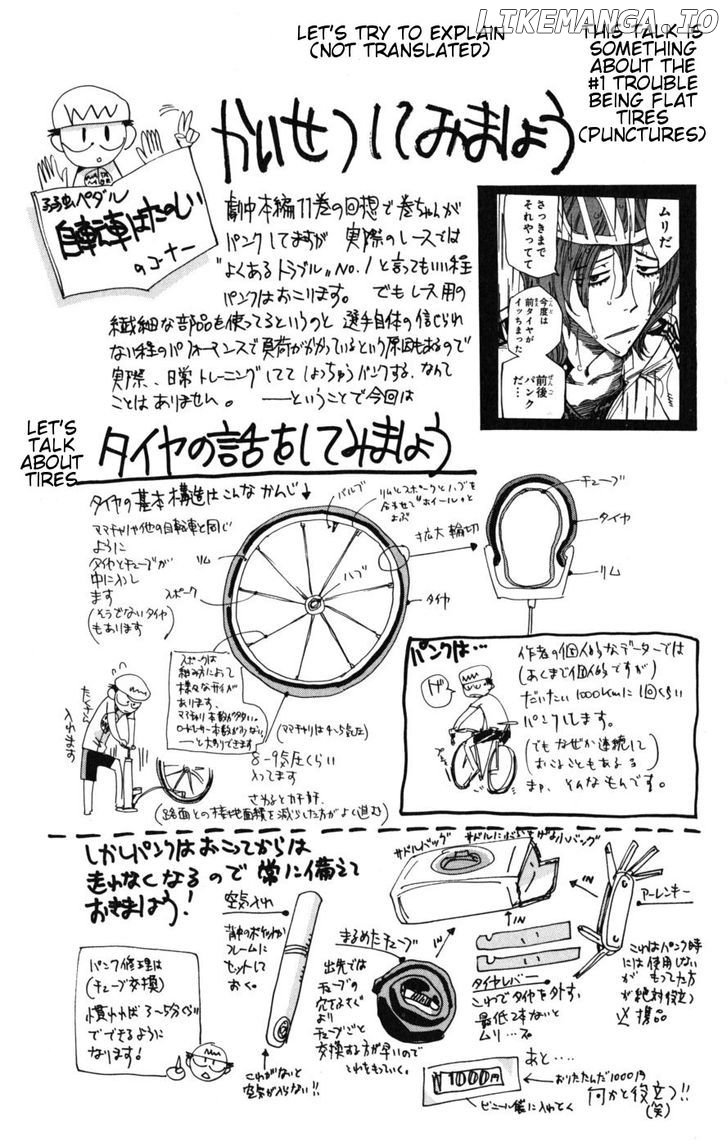 LIKEMANGA.IO
LET'S TRY TO EXPLAIN
(NOT TRANSLATED)
THIS TALK IS
SOMETHING
ABOUT THE
#1 TROUBLE
BEING FLAT
TIRES
(PUNCTURES)
かいせつしてみましょう
弱虫ペダル
自転車はたのしい
のコーナー
劇中本編11巻の回想で巻ちゃんが
パンクしてますが 実際のレースでは
"よくあるトラブル"No.1と言ってもいい程
パンクはおこります。 でもレース用の
繊細な部品を使ってるというのと 選手自体の信じられ
ない程のパフォーマンスで負荷がかかっているという原因もあるので
実際、日常トレーニングしてて しょっちゅうパンクする、なんて
ことはありません。 ──ということで今回は
ムリだ
さっきまで
それやってて
今度は
前タイヤが
イッちまった
前後
パンク
だ…
LET'S
TALK
ABOUT
TIRES
タイヤの話をしてみましょう
タイヤの基本構造はこんなかんじ↓
ママチャリや他の自転車と同じ
ように
タイヤとチューブが
中に入ってます
(そうでないタイヤ
もあります)
バルブ
リムとスポークとハブを
合わせて"ホイール"と
よぶ
リム
スポーク
ハブ
タイヤ
拡大 輪切
チューブ
タイヤ
リム
スポークは
組み方によって
様々なタイプが
あります。
ママチャリ本数が多い。
ロードレーサー本数が少ない。
──と大別できます
(ママチャリは4〜5気圧)
8-9気圧くらい
入ってます
さわるとカチカチ
(路面との接地面積を減らした方がよく進む)
たくさん
入れます
パンクは…
作者の個人的なデーターでは
(あくまで個人的ですが)
だいたい1000kmに1回くらい
パンクします。
(でもなぜか連続して
おこることもある
まぁ、そんなもんです。
しかしパンクはおこってからは
走れなくなるので 常に備えて
おきましょう!
パンク修理は
(チューブ交換)
慣れれば3〜5分ぐらい
でできるように
なります!
空気入れ
背中のポケットか
フレームに
セットして
おく。
これがないと
空気が入らない!!
まるめたチューブ
出先では
チューブの
穴をふさぐ
より
チューブごと
交換する方が早いので
これをもっていく。
サドルバッグ
サドルにぶらさげる小バッグ
IN
IN
IN
タイヤレバー
これでタイヤを外す。
最低2本ないと
ムリ…
アーレンキー
これはパンク時
には使用しない
が もってた方
が絶対役立つ
必携品
あと…
¥1000円
おりたたんだ1000円
何かと役立つ!!
(笑)
ビニール袋に入れとく